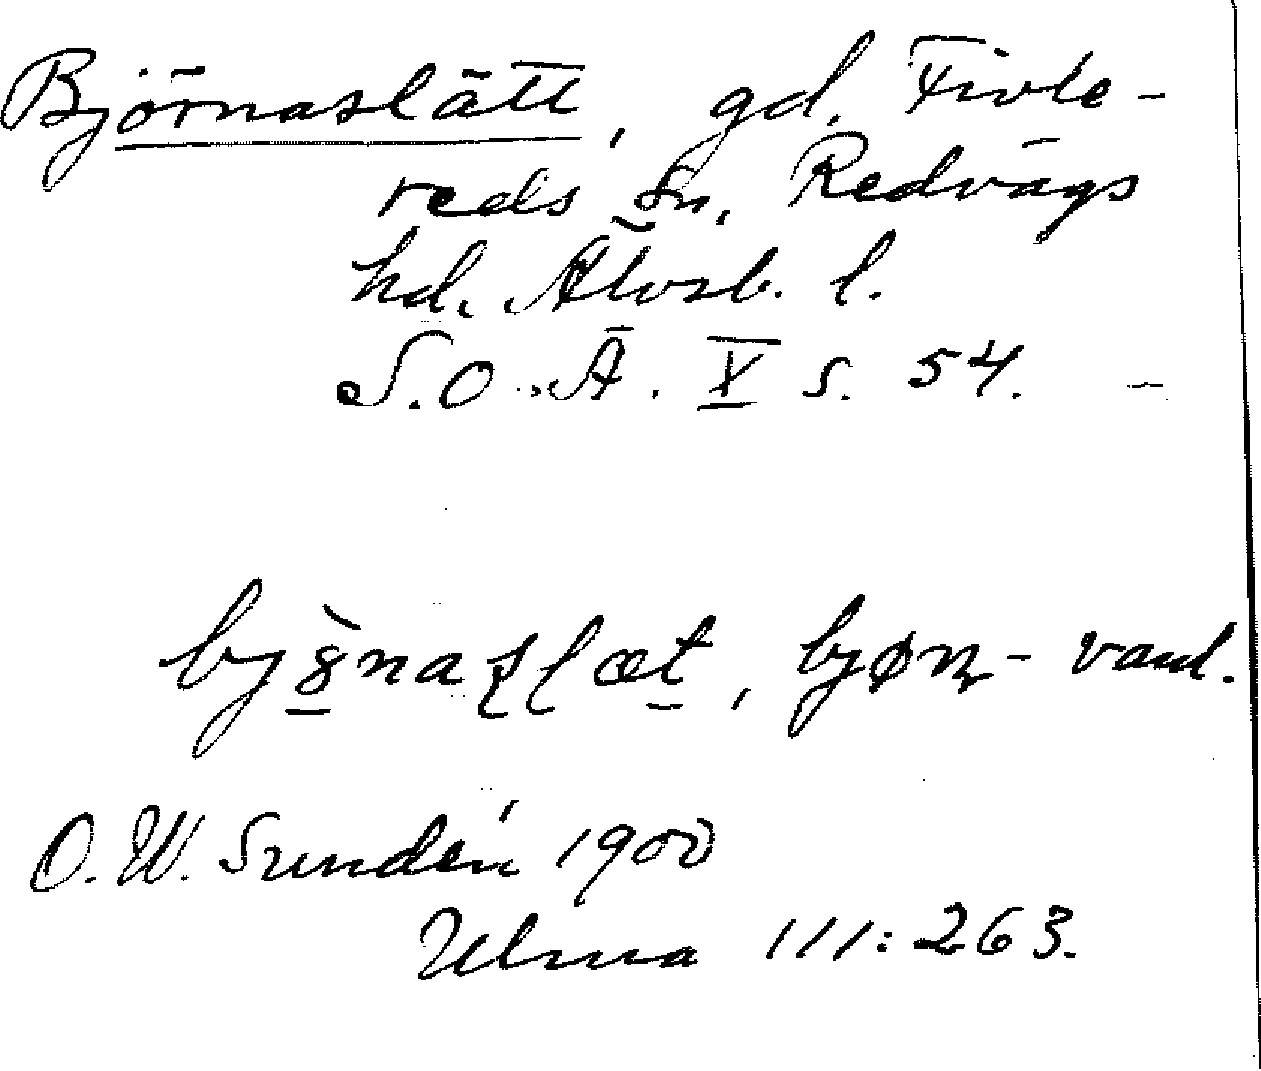 Björnaslätt, gd. Fivle-
reds sn, Redvägs
hd. Älvsb. l.
S.O.Ä. X s. 54. –
bjò᷂naʂɭæt̠, bjøɳ- vanl.
O.W. Sundén 1900
Ulma 111:263.